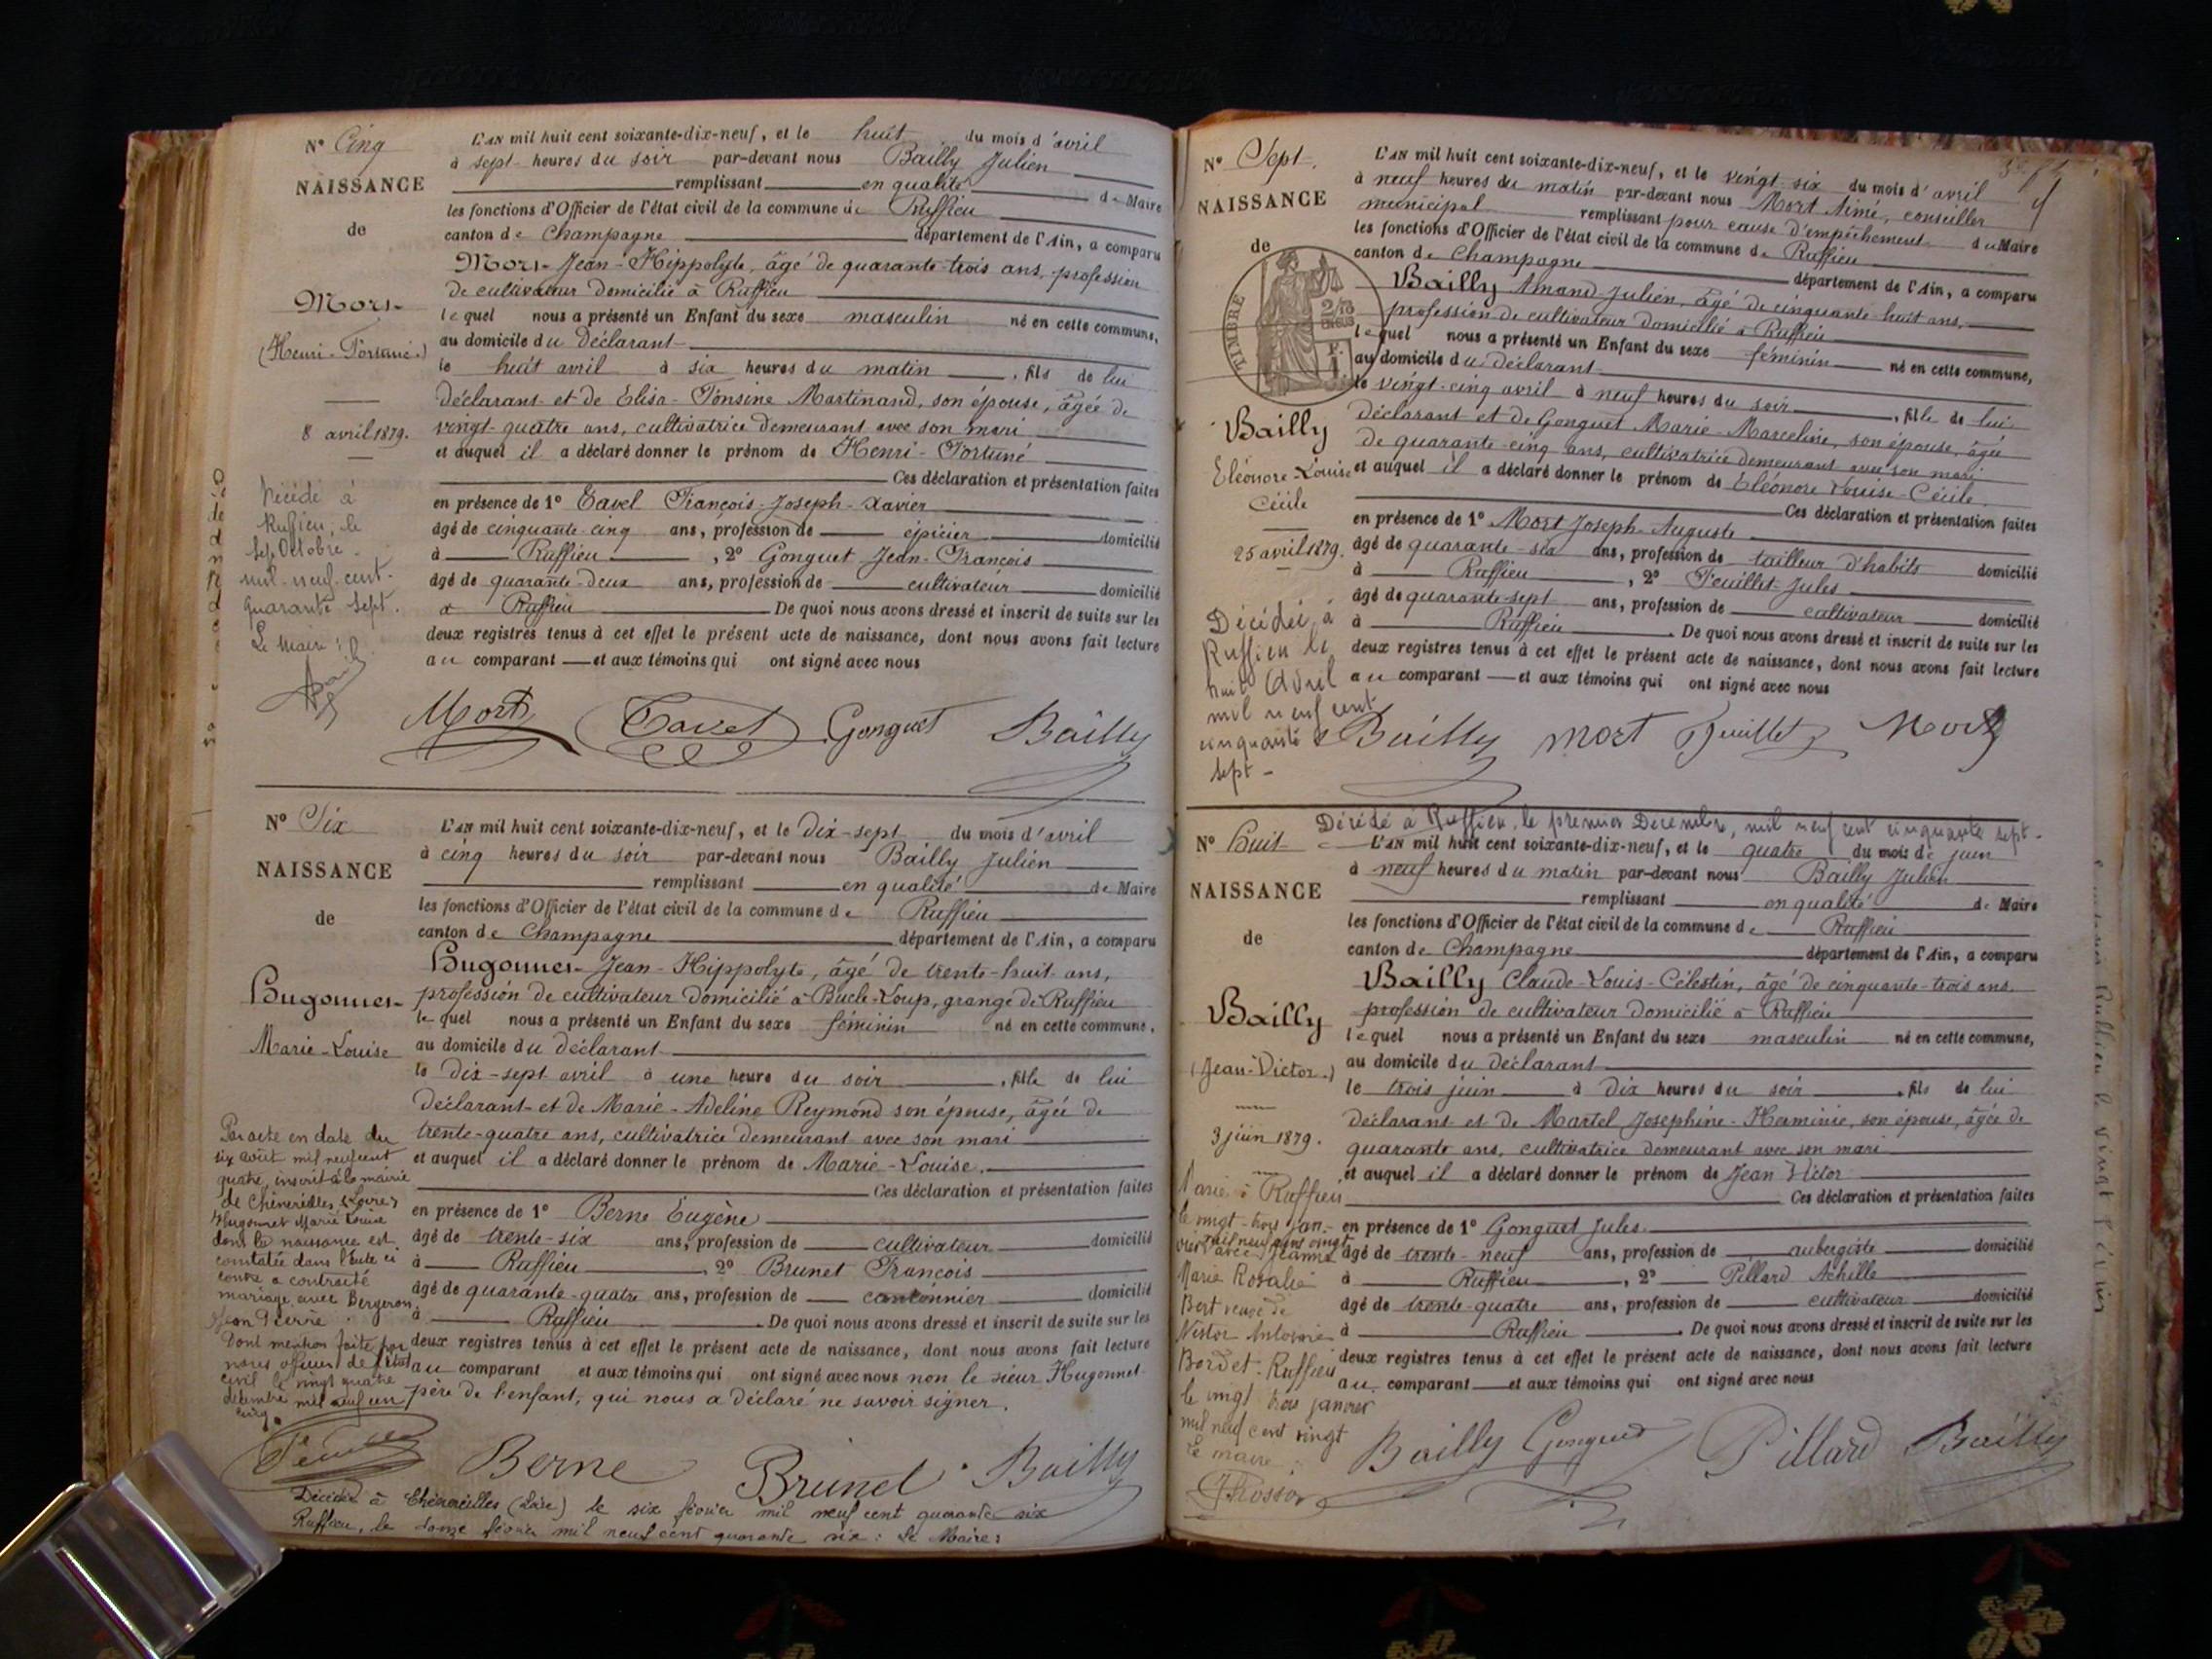 N° Cinq
NAISSANCE
de
Mort
(Henri-Fortuné.)
8 avril 1879.
Décédé à
Ruffieu, le
sept Octobre
mil-neuf-cent-
quarante sept.
Le Maire:
L'AN mil huit cent soixante-dix-neuf, et le huit du mois d'avril
à sept heures du soir par-devant nous Bailly Julien
remplissant en qualité de Maire
les fonctions d'Officier de l'état civil de la commune de Ruffieu
canton de Champagne département de l'Ain, a comparu
Mort Jean-Hippolyte, âgé de quarante-trois ans, profession
de cultivateur domicilié à Ruffieu
lequel nous a présenté un Enfant du sexe masculin né en cette commune,
au domicile du déclarant
le huit avril à six heures du matin, fils de lui
déclarant et de Elisa-Fonsine Martinand, son épouse, âgée de
vingt-quatre ans, cultivatrice demeurant avec son mari
et auquel il a déclaré donner le prénom de Henri-Fortuné
Ces déclaration et présentation faites
en présence de 1° Tavel François-Joseph-Xavier
âgé de cinquante-cinq ans, profession de épicier domicilié
à Ruffieu, 2° Gonguet Jean-François
âgé de quarante-deux ans, profession de cultivateur domicilié
à Ruffieu De quoi nous avons dressé et inscrit de suite sur les
deux registres tenus à cet effet le présent acte de naissance, dont nous avons fait lecture
au comparant et aux témoins qui ont signé avec nous
Mort Tavel Gonguet Bailly
N° Six
NAISSANCE
de
Hugonnet
Marie-Louise
Par acte en date du
six août mil neuf cent
quatre, inscrit à la mairie
de Chéverelles (Loire)
Hugonnet Marie Louise
dont la naissance est
constatée dans l'acte ci
contre a contracté
mariage avec Bergeron
Jean Pierre
Dont mention faite par
nous officier de l'état
civil le vingt quatre
décembre mil neuf cent
cinq.
L'AN mil huit cent soixante-dix-neuf, et le dix-sept du mois d'avril
à cinq heures du soir par-devant nous Bailly Julien
remplissant en qualité de Maire
les fonctions d'Officier de l'état civil de la commune de Ruffieu
canton de Champagne département de l'Ain, a comparu
Hugonnet Jean-Hippolyte, âgé de trente-huit ans,
profession de cultivateur domicilié à Bucle-Loup, grange de Ruffieu
lequel nous a présenté un Enfant du sexe féminin né en cette commune,
au domicile du déclarant
le dix-sept avril à une heure du soir, fille de lui
déclarant et de Marie-Adeline Reymond son épouse, âgée de
trente-quatre ans, cultivatrice demeurant avec son mari
et auquel il a déclaré donner le prénom de Marie-Louise.
Ces déclaration et présentation faites
en présence de 1° Berne Eugène
âgé de trente-six ans, profession de cultivateur domicilié
à Ruffieu, 2° Brunet François
âgé de quarante-quatre ans, profession de cantonnier domicilié
à Ruffieu De quoi nous avons dressé et inscrit de suite sur les
deux registres tenus à cet effet le présent acte de naissance, dont nous avons fait lecture
au comparant et aux témoins qui ont signé avec nous non le sieur Hugonnet
père de l'enfant, qui nous a déclaré ne savoir signer.
Berne Brunet Bailly
Décédée à Chévereilles (Loire) le six février mil neuf cent quarante six
Ruffieu, le douze février mil neuf cent quarante six: Le Maire:
N° Sept.
NAISSANCE
de
TIMBRE
Bailly
Eléonore-Louise
Cécile
25 avril 1879.
Décédée à
Ruffieu le
huit Avril
mil neuf cent
cinquante
sept-
L'AN mil huit cent soixante-dix-neuf, et le vingt-six du mois d'avril
à neuf heures du matin par-devant nous Mort Aimé, conseiller
municipal remplissant pour cause d'empêchement du Maire
les fonctions d'Officier de l'état civil de la commune de Ruffieu
canton de Champagne département de l'Ain, a comparu
Bailly Amand Julien, âgé de cinquante-huit ans,
profession de cultivateur domicilié à Ruffieu
lequel nous a présenté un Enfant du sexe féminin né en cette commune,
au domicile du déclarant
le vingt-cinq avril à neuf heures du soir, fille de lui
déclarant et de Gonguet Marie-Marceline, son épouse, âgée
de quarante-cinq ans, cultivatrice demeurant avec son mari
et auquel il a déclaré donner le prénom de Eléonore Louise-Cécile
Ces déclaration et présentation faites
en présence de 1° Mort Joseph-Auguste
âgé de quarante-six ans, profession de tailleur d'habits domicilié
à Ruffieu, 2° Feuillet Jules
âgé de quarante-sept ans, profession de cultivateur domicilié
à Ruffieu. De quoi nous avons dressé et inscrit de suite sur les
deux registres tenus à cet effet le présent acte de naissance, dont nous avons fait lecture
au comparant et aux témoins qui ont signé avec nous
Bailly mort Feuillet Mort
Décédé à Ruffieu, le premier Décembre, mil neuf cent cinquante sept.
N° Huit
NAISSANCE
de
Bailly
(Jean-Victor.)
3 juin 1879.
Marié à Ruffieu
le vingt-trois jan-
vier mil neuf cent vingt
avec Jeanne
Marie Rosalie
Bert veuve de
Nestor Antoine
Bordet. Ruffieu
le vingt trois janvier
mil neuf cent vingt
Le maire:
L'AN mil huit cent soixante-dix-neuf, et le quatre du mois de juin
à neuf heures du matin par-devant nous Bailly Julien
remplissant en qualité de Maire
les fonctions d'Officier de l'état civil de la commune de Ruffieu
canton de Champagne département de l'Ain, a comparu
Bailly Claude-Louis-Célestin, âgé de cinquante-trois ans,
profession de cultivateur domicilié à Ruffieu
lequel nous a présenté un Enfant du sexe masculin né en cette commune,
au domicile du déclarant
le trois juin à dix heures du soir, fils de lui
déclarant et de Martel Joséphine-Herminie, son épouse, âgée de
quarante ans, cultivatrice demeurant avec son mari
et auquel il a déclaré donner le prénom de Jean Victor
Ces déclaration et présentation faites
en présence de 1° Gonguet Jules.
âgé de trente-neuf ans, profession de aubergiste domicilié
à Ruffieu, 2° Pillard Achille
âgé de trente-quatre ans, profession de cultivateur domicilié
à Ruffieu. De quoi nous avons dressé et inscrit de suite sur les
deux registres tenus à cet effet le présent acte de naissance, dont nous avons fait lecture
au comparant et aux témoins qui ont signé avec nous
Bailly Gonguet Pillard Bailly